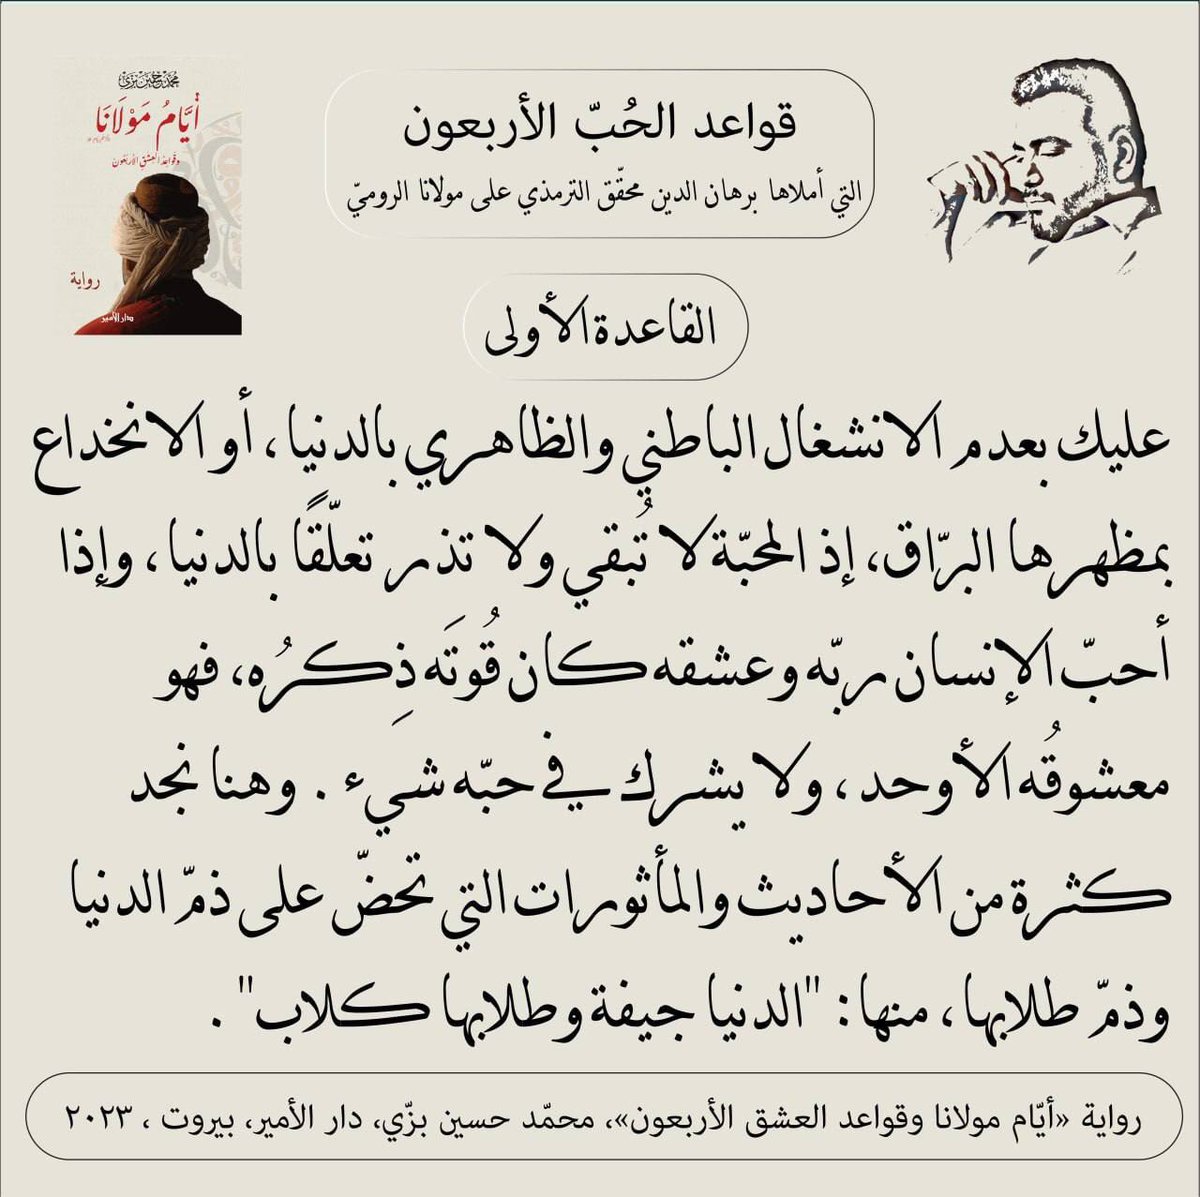 محمد حسين بزي
أيَّامُ مَوْلَانَا
وقواعد العشق الأربعون
رواية
دار الأمير
قواعد الحُبّ الأربعون
التي أملاها برهان الدين محقّق الترمذي على مولانا الروميّ
القاعدة الأولى
عليك بعدم الانشغال الباطني والظاهري بالدنيا، أو الانخداع
بمظهرها البرّاق، إذ المحبّة لا تُبقي ولا تذر تعلّقًا بالدنيا، وإذا
أحبّ الإنسان ربّه وعشقه كان قُوتَه ذِكرُه، فهو
معشوقُه الأوحد، ولا يشرك في حبّه شيء. وهنا نجد
كثرة من الأحاديث والمأثورات التي تحضّ على ذمّ الدنيا
وذمّ طلابها، منها: "الدنيا جيفة وطلابها كلاب".
رواية «أيّام مولانا وقواعد العشق الأربعون»، محمّد حسين بزّي، دار الأمير، بيروت، ٢٠٢٣